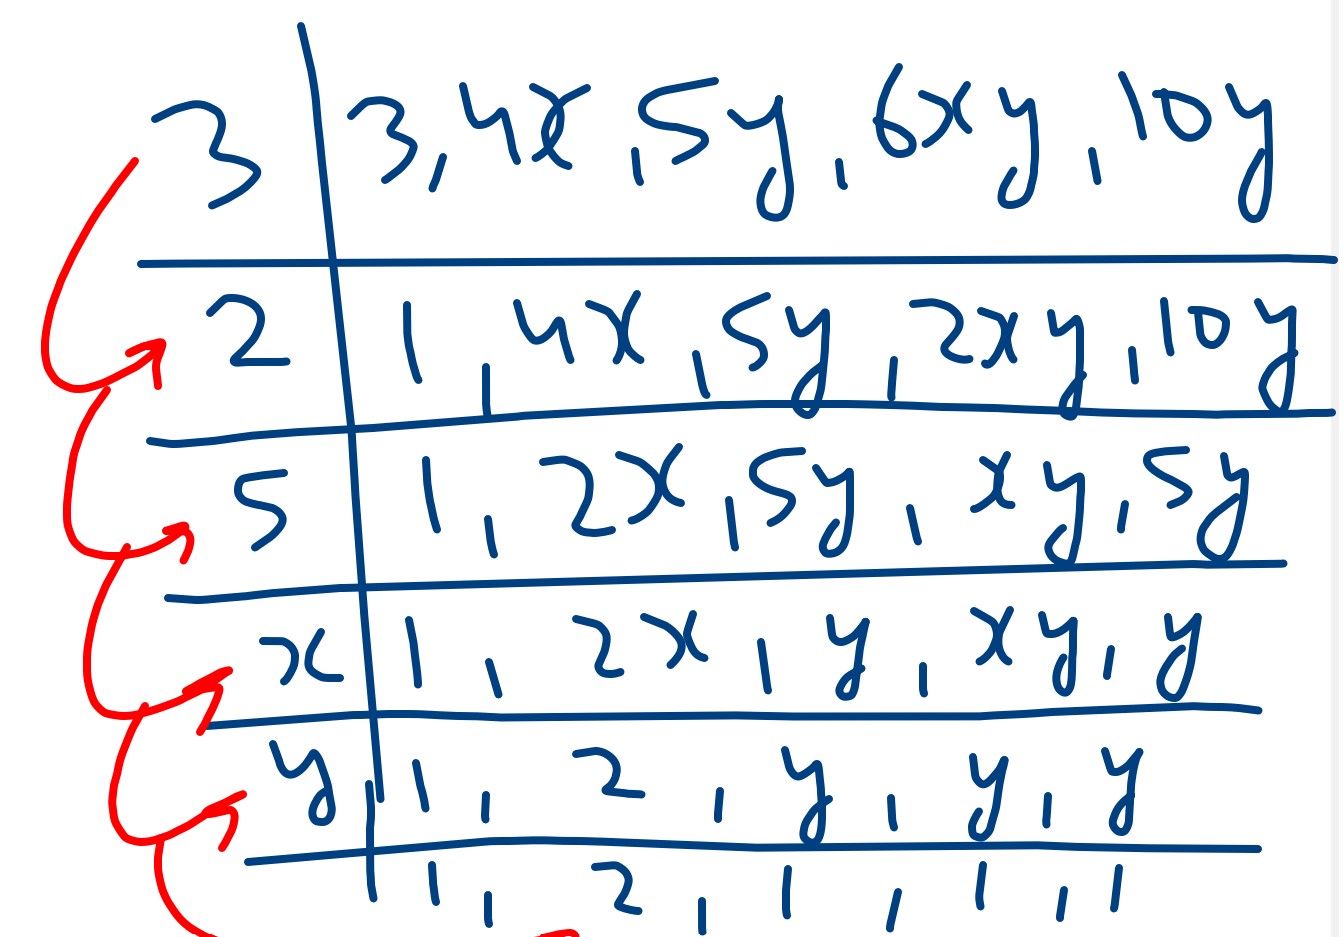 3 | 3, 4x, 5y, 6xy, 10y
2 | 1, 4x, 5y, 2xy, 10y
5 | 1, 2x, 5y, xy, 5y
x | 1, 2x, y, xy, y
y | 1, 2, y, y, y
1, 2, 1, 1, 1